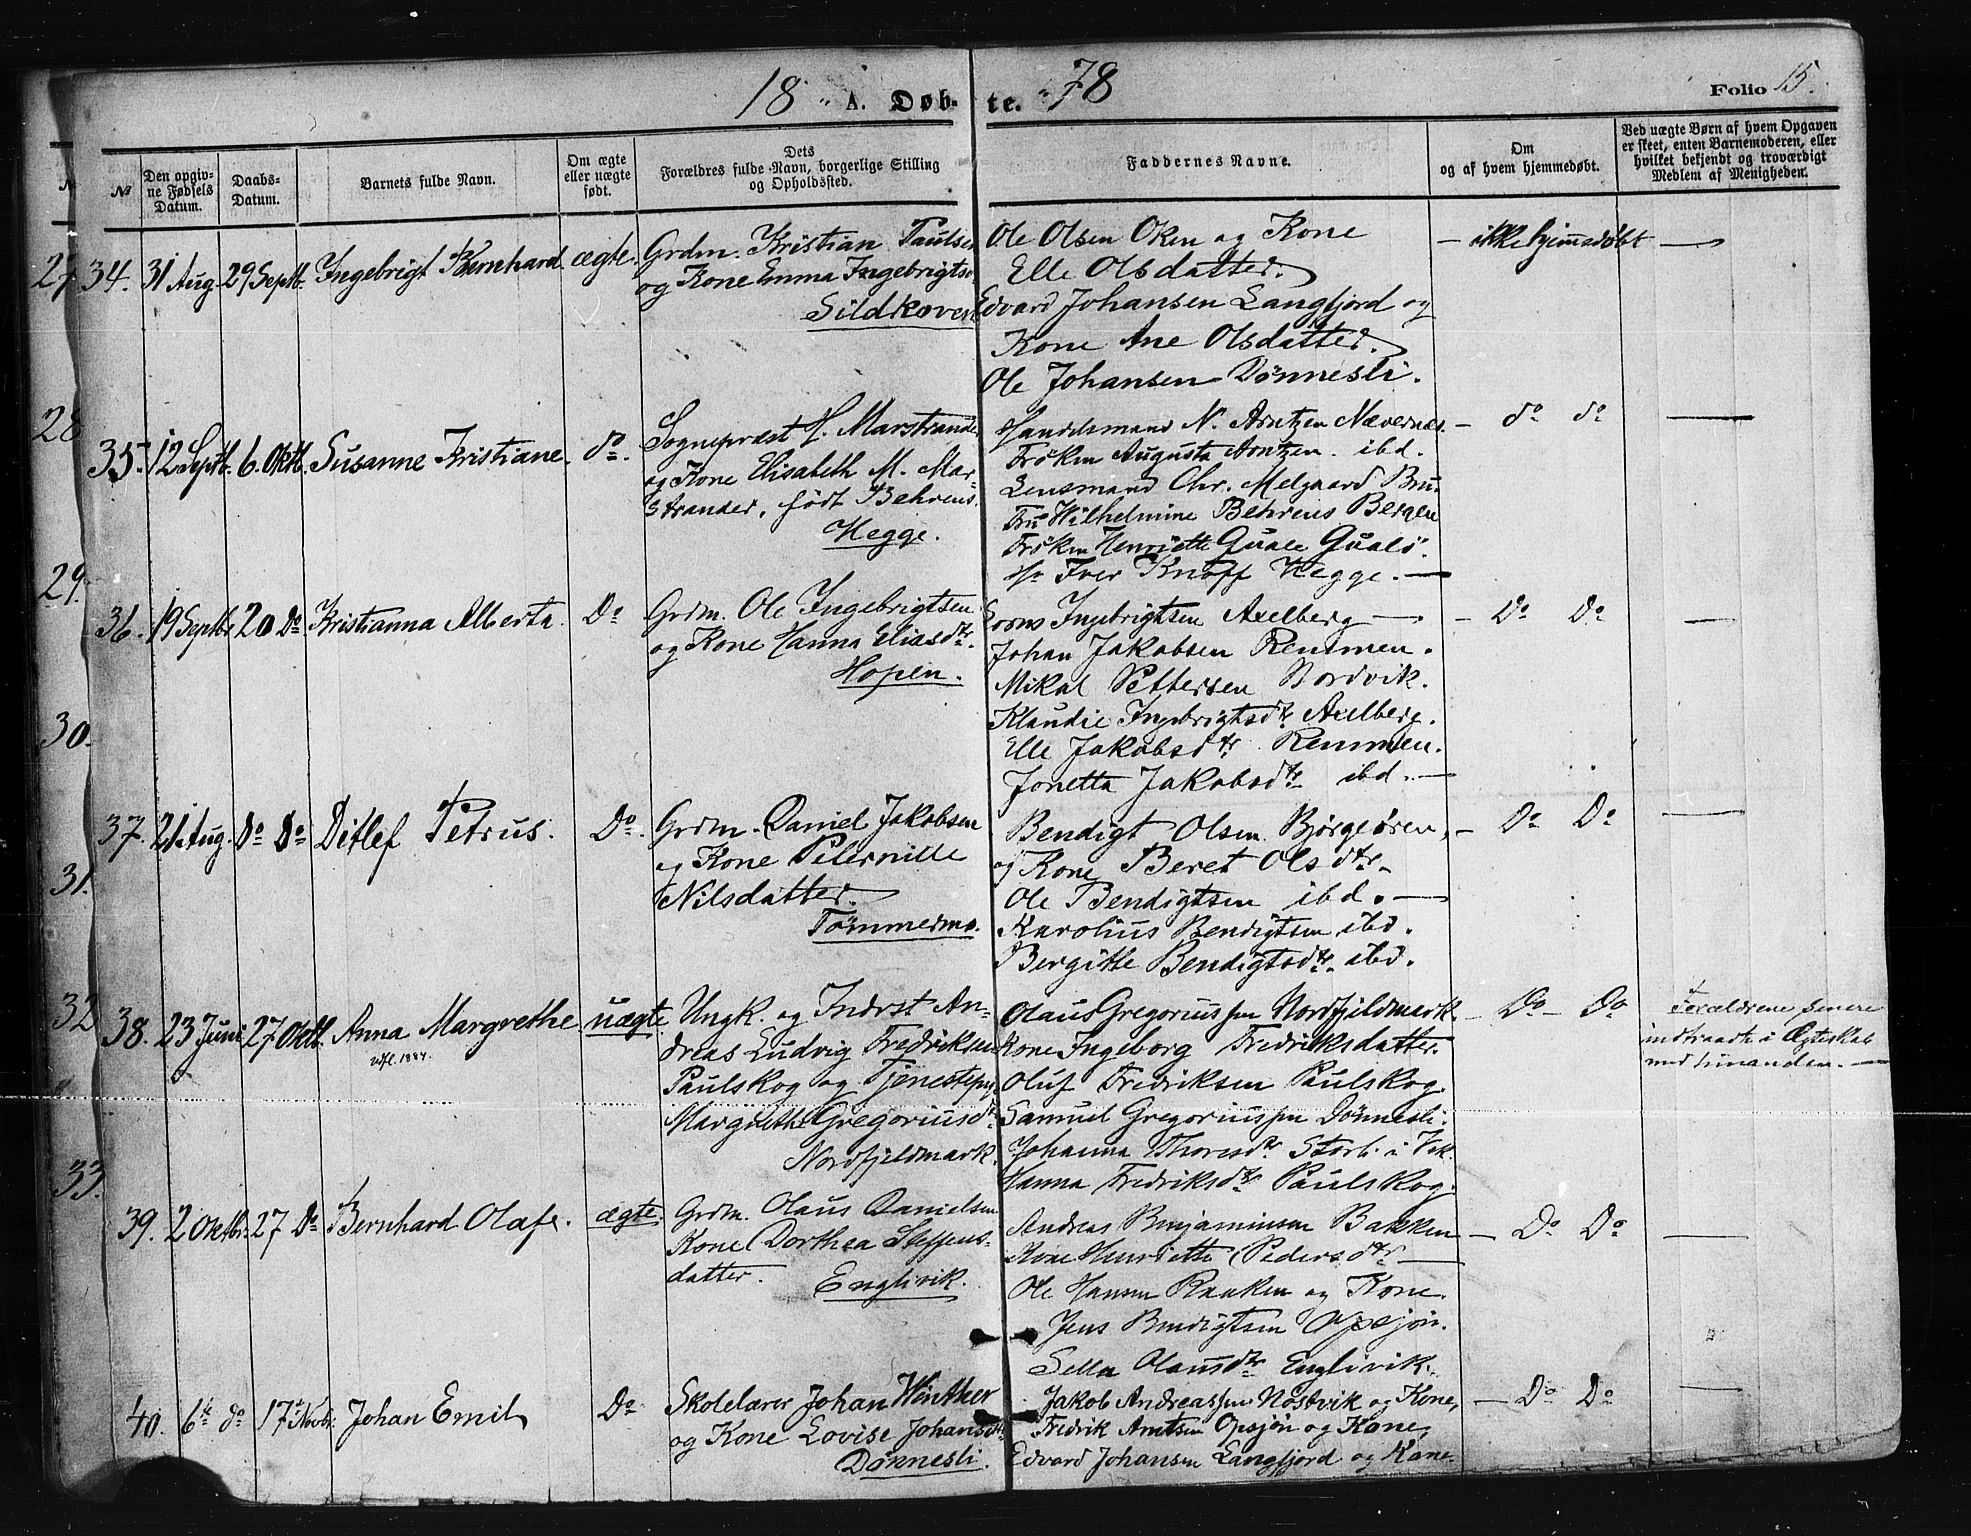 18 A. Døb-te. 78
Folio 15.
№
Den opgiv-
ne Fødsels
Datum.
Daabs-
Datum.
Barnets fulde Navn.
Om ægte
eller uægte
født.
Dets
Forældres fulde Navn, borgerlige Stilling
og Opholdssted.
Faddernes Navne.
Om
og af hvem hjemmedøbt.
Ved uægte Børn af hvem Opgaven
er skeet, enten Barnemoderen, eller
hvilket bekjendt og troværdigt
Medlem af Menigheden.
27
34. 31 Aug. 29 Septb. Ingebrigt Bernhard. ægte.
Grdm. Kristian Paulsen
og Kone Emma Ingebrigtsd
Sildhoven
Ole Olsen Oken og Kone
Elle Olsdatter.
Edvard Johansen Langfjord og
Kone Ane Olsdatter.
Ole Johansen Dönnesli.
— ikke hjemmedøbt —
28
35. 12 Septb. 6. Oktb. Susanne Kristiane. do.
Sogneprest H. Marstrander
og Kone Elisabeth M. Mar-
strander, født Behrens.
Hegge.
Handelsmand N. Arntzen Nævernes.
Frøken Augusta Arntzen. ibd.
Lensmand Chr. Melgaard Bru.
Fru Wilhelmine Behrens Bergen
Frøken Henriette Quale Qualö.
Hr Iver Knoff Hegge. —
— do do —
29.
36. 19 Septbr 20 Do Kristianna Alberta. Do
Grdm. Ole Ingebrigtsen
og Kone Hanna Eliasdtr.
Hopen.
Ingebrigtsen Axelberg —
Johan Jakobsen Remmen.
Mikal Pettersen Bordvik.
Klaudie Ingebrigtsdtr Axelberg.
Elle Jakobsdtr Remmen.
Jonetta Jakobsdtr ibd. —
— Do Do —
30.
37. 21. Aug. Do Do Ditlef Petrus. Do.
Grdm. Daniel Jakobsen
og Kone Peternille
Nilsdatter.
Tömmermo.
Bendigt Olsen Bjørgeören,
og Kone Beret Olsdtr.
Ole Bendigtsen ibd. —
Karolius Bendigtsen ibd.
Bergitte Bendigtsdtr. ibd.
— Do Do —
31.
32
38. 23 Juni 27 Oktb. Anna Margrethe uægte
1884.
Ungk. og Indrst An-
dreas Ludvig Fredriksen
Paulskog og Tjenestepig
Margrethe Gregoriusdtr
Nordfjeldmark.
Olaus Gregoriussen Nordfjeldmark.
Kone Ingeborg Fredriksdatter.
Oluf Fredriksen Paulskog.
Samuel Gregoriussen Dönnesli.
Johanna Thoresdtr Storb. i Vik.
Hanna Fredriksdtr Paulskog.
— Do — Do
Forældrene senere
indtraadt i Ægteskab
med hinanden. —
33.
39. 2 Oktbr. 27 Do Bernhard Olafe. ægte.
Grdm. Olaus Danielsen
Kone Dorthea Steffens-
datter.
Englivik.
Andreas Benjaminsen Bakken
Kone Henriette Pedersdtr —
Ole Hansen Raaken og Kone.
Jens Bendigtsen Opsjön.
Sella Olausdtr Englivik.
— Do Do —
40. 6te do 17de Novb. Johan Emil Do
Skolelærer Johan Winther
og Kone Lovise Johansdtr
Dönnesli.
Jakob Andreassen Nostvik og Kone,
Fredrik Arntsen Opsjön og Kone,
Edvard Johansen Langfjord og Kone.
— Do Do —